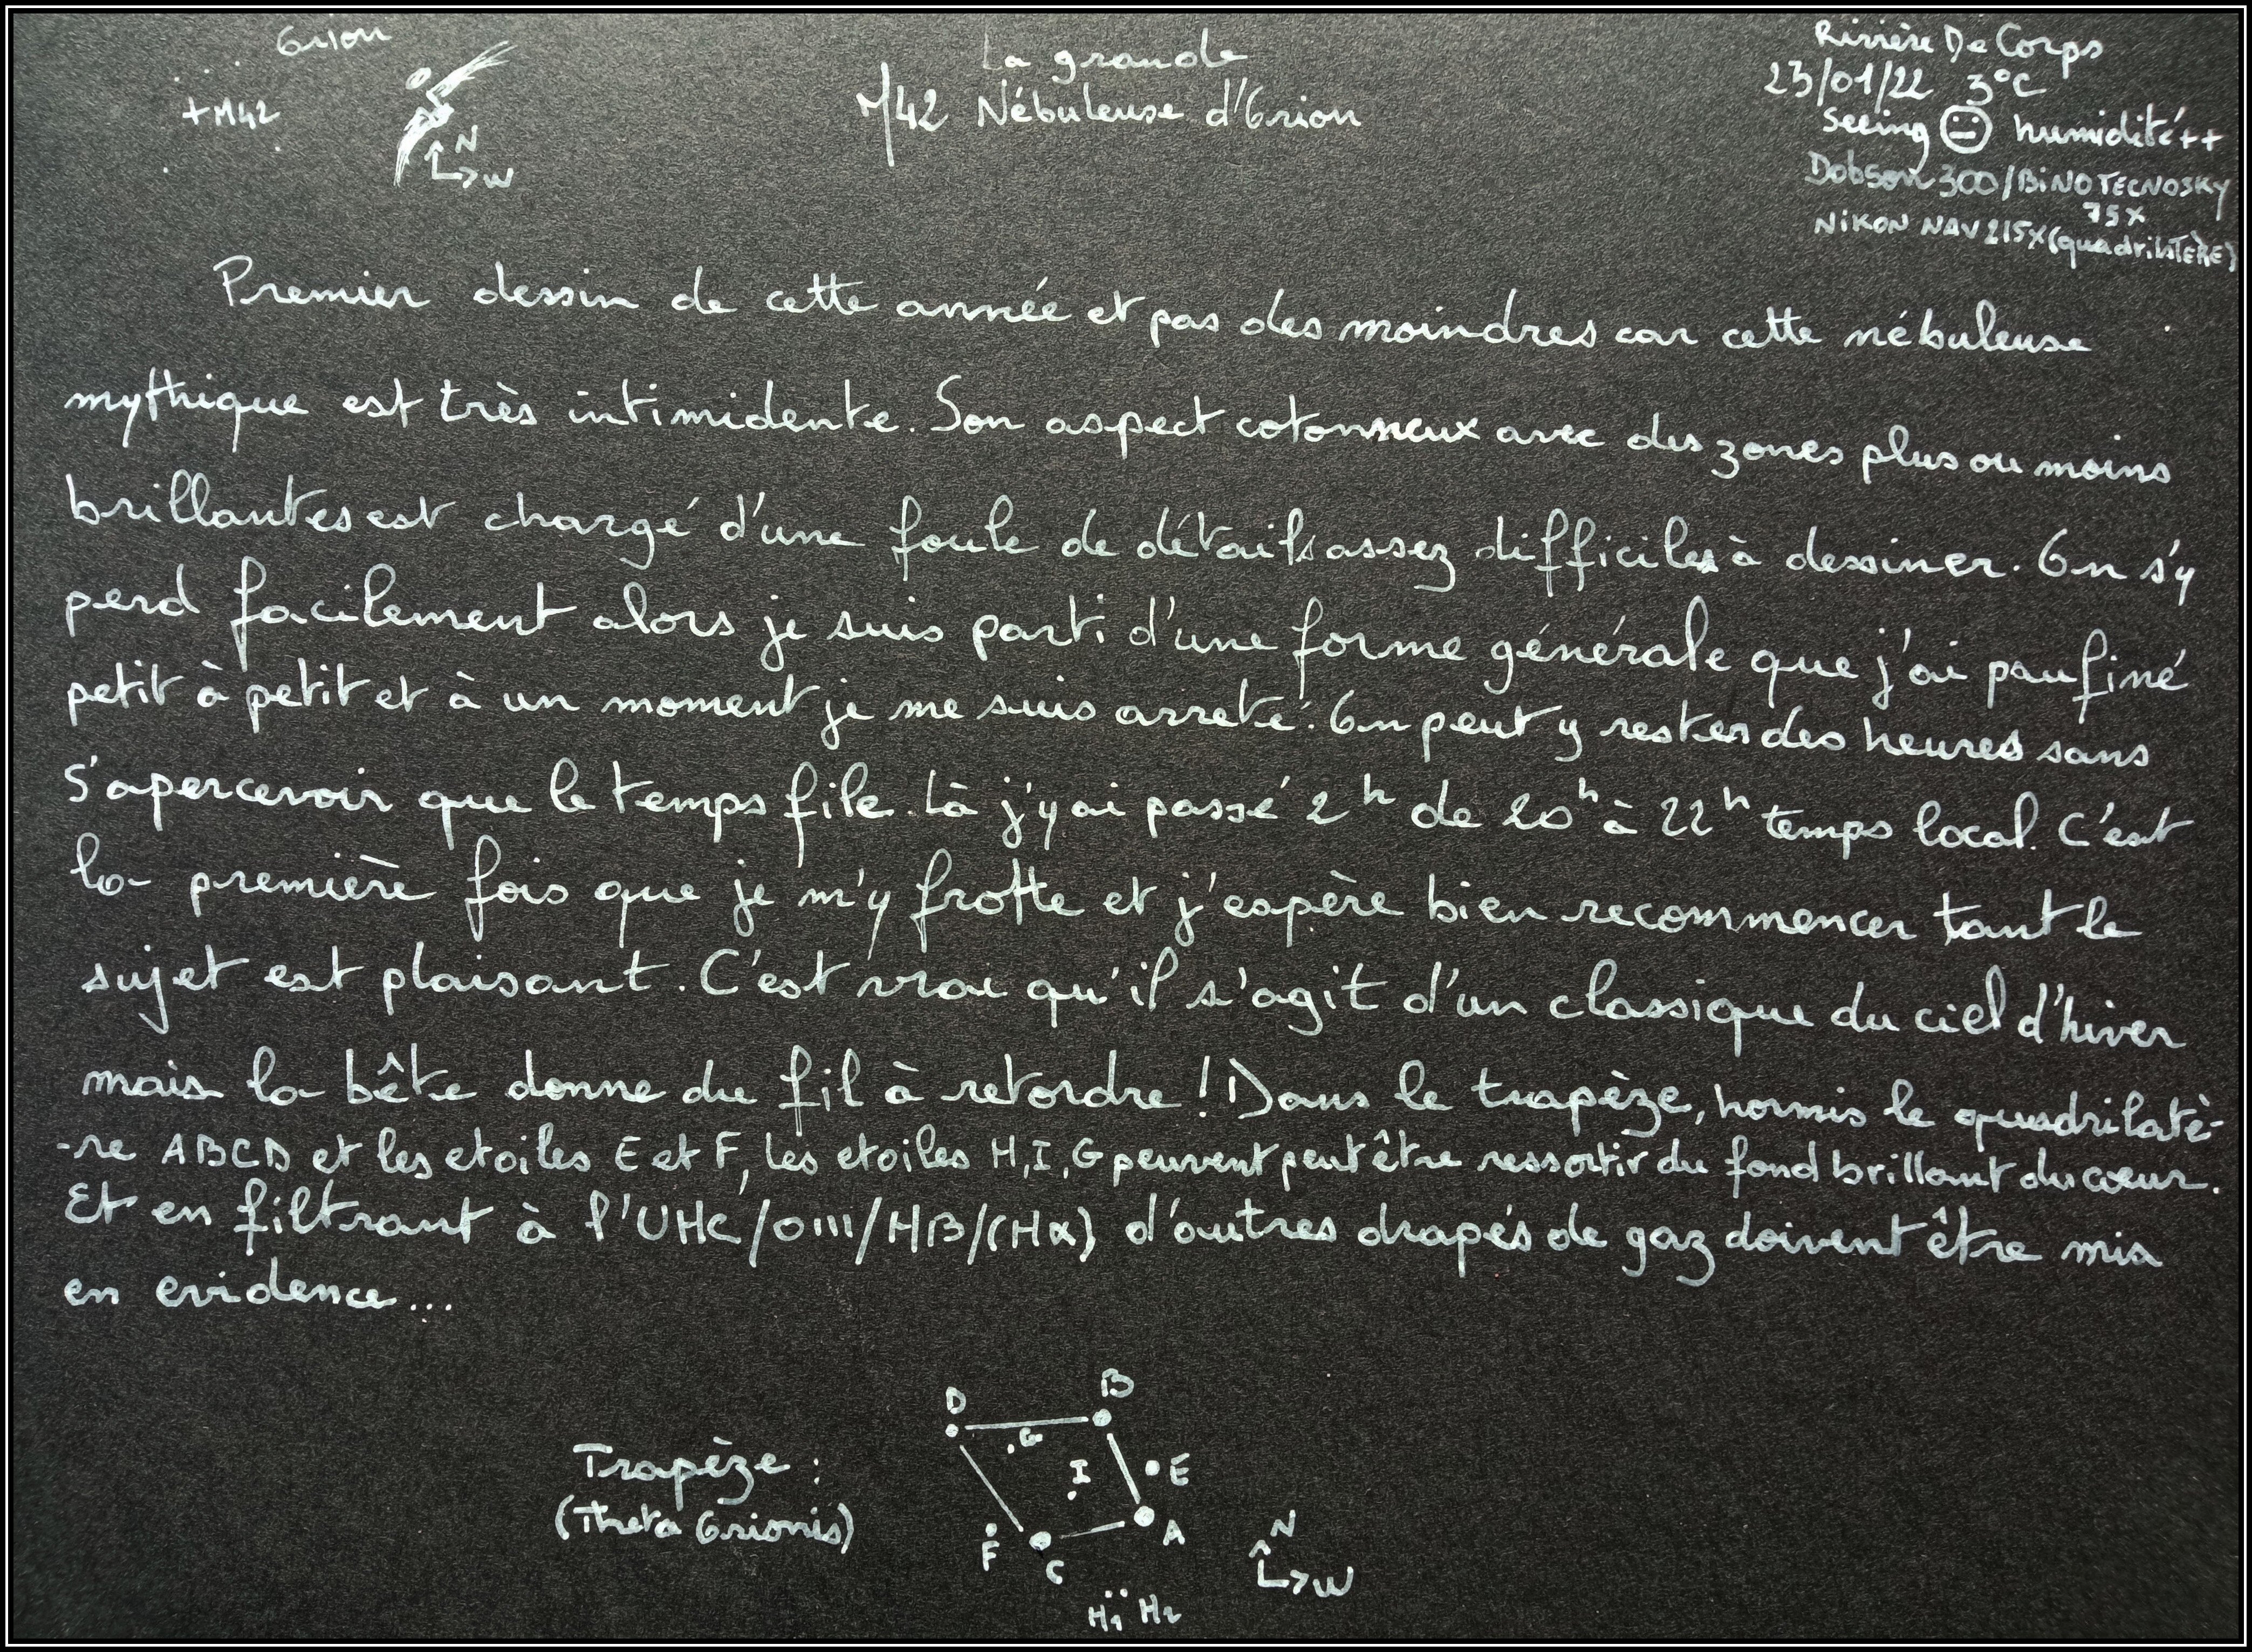 Orion
+M42
N
W
La grande
M42 Nébuleuse d'Orion
Rivière De Corps
23/01/22 3°C
Seeing 😐 humidité++
Dobson 300/BINO TECNOSKY
75x
NIKON NAV 215X (quadrilatère)
Premier dessin de cette année et pas des moindres car cette nébuleuse
mythique est très intimidente. Son aspect cotonneux avec des zones plus ou moins
brillantes est chargé d'une foule de détails assez difficiles à dessiner. On s'y
perd facilement alors je suis parti d'une forme générale que j'ai paufiné
petit à petit et à un moment je me suis arreté. On peut y rester des heures sans
s'apercevoir que le temps file. Là j'y ai passé 2h de 20h à 22h temps local. C'est
la première fois que je m'y frotte et j'espère bien recommencer tant le
sujet est plaisant. C'est vrai qu'il s'agit d'un classique du ciel d'hiver
mais la bête donne du fil à retordre ! Dans le trapèze, hormis le quadrilatè-
-re ABCD et les etoiles E et F, les etoiles H, I, G peuvent peut être ressortir du fond brillant du coeur.
Et en filtrant à l'UHC/OIII/HB/(Hα) d'autres drapés de gaz doivent être mis
en evidence...
Trapèze :
(Theta Orionis)
D
B
G
I
E
A
F
C
H1 H2
N
W